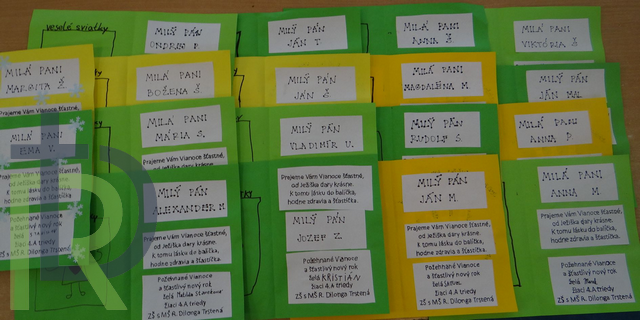 veselé sviatky
MILÝ PÁN
ONDREJ P.
MILÝ PÁN
JÁN T.
MILÁ PANI
ANNA Š
MILÁ PANI
VIKTÓRIA Š
MILÁ PANI
MARGITA Š
MILÁ PANI
BOŽENA Š
MILÝ PÁN
JÁN Š
MILÁ PANI
MAGDALÉNA M
MILÝ PÁN
JÁN MAL
Prajeme Vám Vianoce šťastné,
MILÁ PANI
EMA V.
MILÁ PANI
MÁRIA S.
MILÝ PÁN
VLADIMÍR U.
MILÝ PÁN
RUDOLF S
MILÁ PANI
ANNA P
Prajeme Vám Vianoce šťastné,
od Ježiška dary krásne.
K tomu lásku do balíčka,
hodne zdravia a šťastíčka.
Požehnané Vianoce
a šťastlivý nový rok
želá
žiaci 4.A triedy
ZŠ s MŠ R. Dilonga Trstená
Prajeme Vám Vianoce šťastné,
MILÝ PÁN
ALEXANDER N
Prajeme Vám Vianoce šťastné,
od Ježiška dary krásne.
K tomu lásku do balíčka,
hodne zdravia a šťastíčka.
Požehnané Vianoce
a šťastlivý nový rok
želá Matilda
žiaci 4.A triedy
ZŠ s MŠ R. Dilonga Trstená
Prajeme Vám Vianoce šťastné,
od Ježiška dary krásne.
K tomu lásku do balíčka,
hodne zdravia a šťastíčka.
MILÝ PÁN
JOZEF Z.
Požehnané Vianoce
a šťastlivý nový rok
želá KRISTIÁN
žiaci 4.A triedy
ZŠ s MŠ R. Dilonga Trstená
MILÝ PÁN
JÁN M
Prajeme Vám Vianoce šťastné,
od Ježiška dary krásne.
K tomu lásku do balíčka,
hodne zdravia a šťastíčka.
Požehnané Vianoce
a šťastlivý nový rok
želá
žiaci 4.A triedy
ZŠ s MŠ R. Dilonga Trstená
MILÁ PANI
ANNA M
Prajeme Vám Vianoce šťastné,
od Ježiška dary krásne.
K tomu lásku do balíčka,
hodne zdravia a šťastíčka.
Požehnané Vianoce
a šťastlivý nový rok
želá
žiaci 4.A triedy
ZŠ s MŠ R. Dilonga Trstená